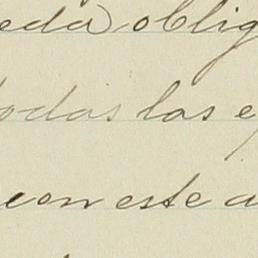 eda oblig
todas las e
con este a